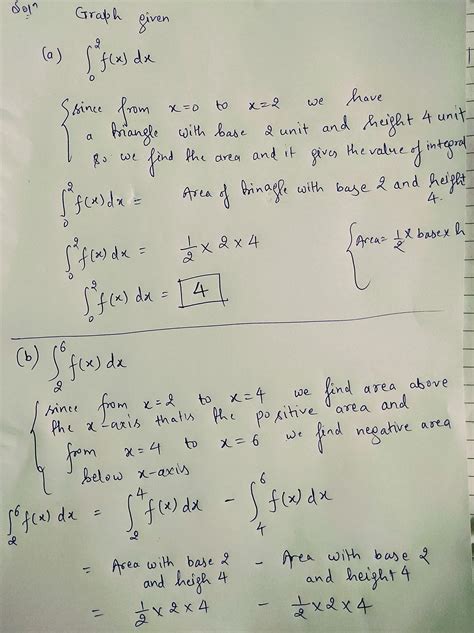 Solⁿ Graph given
(a) ∫₀² f(x) dx
{ since from x=0 to x=2 we have
a triangle with base 2 unit and height 4 unit
So we find the area and it gives the value of integral
∫₀² f(x) dx = Area of trinagle with base 2 and height 4.
∫₀² f(x) dx = 1/2 × 2 × 4 { Area = 1/2 × base × h
∫₀² f(x) dx = 4
(b) ∫₂⁶ f(x) dx
{ since from x=2 to x=4 we find area above
the x-axis thatis the positive area and
from x=4 to x=6 we find negative area
below x-axis
∫₂⁶ f(x) dx = ∫₂⁴ f(x) dx - ∫₄⁶ f(x) dx
= Area with base 2 and heigh 4 - Area with base 2 and height 4
= 1/2 × 2 × 4 - 1/2 × 2 × 4